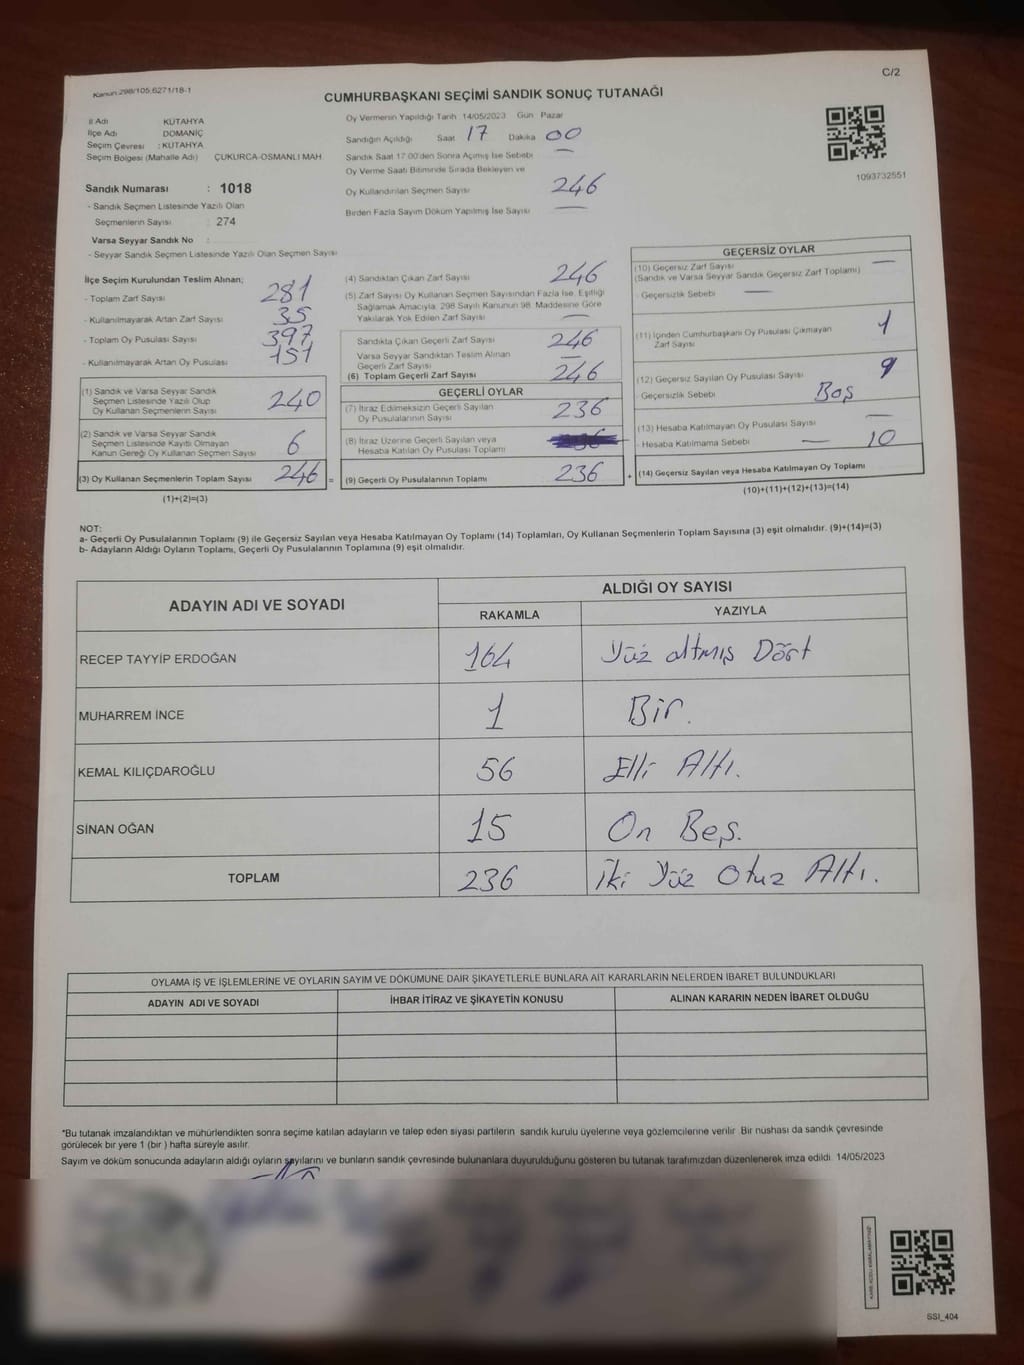 C/2
Kanun:298/105;6271/18-1
CUMHURBAŞKANI SEÇİMİ SANDIK SONUÇ TUTANAĞI
İl Adı KÜTAHYA
İlçe Adı DOMANİÇ
Seçim Çevresi : KÜTAHYA
Seçim Bölgesi (Mahalle Adı) ÇUKURCA-OSMANLI MAH.
Sandık Numarası : 1018
- Sandık Seçmen Listesinde Yazılı Olan
Seçmenlerin Sayısı : 274
Varsa Seyyar Sandık No :
- Seyyar Sandık Seçmen Listesinde Yazılı Olan Seçmen Sayısı
Oy Vermenin Yapıldığı Tarih 14/05/2023 Gün Pazar
Sandığın Açıldığı Saat 17 Dakika 00
Sandık Saat 17:00'den Sonra Açılmış İse Sebebi —
Oy Verme Saati Bitiminde Sırada Bekleyen ve
Oy Kullandırılan Seçmen Sayısı 246
Birden Fazla Sayım Döküm Yapılmış İse Sayısı —
1093732551
İlçe Seçim Kurulundan Teslim Alınan;
- Toplam Zarf Sayısı 281
- Kullanılmayarak Artan Zarf Sayısı 35
- Toplam Oy Pusulası Sayısı 397
- Kullanılmayarak Artan Oy Pusulası 151
(1) Sandık ve Varsa Seyyar Sandık
Seçmen Listesinde Yazılı Olup
Oy Kullanan Seçmenlerin Sayısı 240
(2) Sandık ve Varsa Seyyar Sandık
Seçmen Listesinde Kayıtlı Olmayan
Kanun Gereği Oy Kullanan Seçmen Sayısı 6
(3) Oy Kullanan Seçmenlerin Toplam Sayısı 246 =
(1)+(2)=(3)
(4) Sandıktan Çıkan Zarf Sayısı 246
(5) Zarf Sayısı Oy Kullanan Seçmen Sayısından Fazla İse, Eşitliği
Sağlamak Amacıyla, 298 Sayılı Kanunun 98. Maddesine Göre
Yakılarak Yok Edilen Zarf Sayısı —
Sandıkta Çıkan Geçerli Zarf Sayısı 246
Varsa Seyyar Sandıktan Teslim Alınan
Geçerli Zarf Sayısı —
(6) Toplam Geçerli Zarf Sayısı 246
GEÇERLİ OYLAR
(7) İtiraz Edilmeksizin Geçerli Sayılan
Oy Pusulalarının Sayısı 236
(8) İtiraz Üzerine Geçerli Sayılan veya
Hesaba Katılan Oy Pusulası Toplamı
(9) Geçerli Oy Pusulalarının Toplamı 236 +
GEÇERSİZ OYLAR
(10) Geçersiz Zarf Sayısı —
(Sandık ve Varsa Seyyar Sandık Geçersiz Zarf Toplamı)
- Geçersizlik Sebebi —
(11) İçinden Cumhurbaşkanı Oy Pusulası Çıkmayan
Zarf Sayısı 1
(12) Geçersiz Sayılan Oy Pusulası Sayısı 9
- Geçersizlik Sebebi Boş
(13) Hesaba Katılmayan Oy Pusulası Sayısı —
- Hesaba Katılmama Sebebi — 10
(14) Geçersiz Sayılan veya Hesaba Katılmayan Oy Toplamı
(10)+(11)+(12)+(13)=(14)
NOT:
a- Geçerli Oy Pusulalarının Toplamı (9) ile Geçersiz Sayılan veya Hesaba Katılmayan Oy Toplamı (14) Toplamları, Oy Kullanan Seçmenlerin Toplam Sayısına (3) eşit olmalıdır. (9)+(14)=(3)
b- Adayların Aldığı Oyların Toplamı, Geçerli Oy Pusulalarının Toplamına (9) eşit olmalıdır.
ADAYIN ADI VE SOYADI ALDIĞI OY SAYISI
RAKAMLA YAZIYLA
RECEP TAYYİP ERDOĞAN 164 Yüz altmış Dört
MUHARREM İNCE 1 Bir.
KEMAL KILIÇDAROĞLU 56 Elli Altı.
SİNAN OĞAN 15 On Beş.
TOPLAM 236 İki Yüz Otuz Altı.
OYLAMA İŞ VE İŞLEMLERİNE VE OYLARIN SAYIM VE DÖKÜMÜNE DAİR ŞİKAYETLERLE BUNLARA AİT KARARLARIN NELERDEN İBARET BULUNDUKLARI
ADAYIN ADI VE SOYADI İHBAR İTİRAZ VE ŞİKAYETİN KONUSU ALINAN KARARIN NEDEN İBARET OLDUĞU
*Bu tutanak imzalandıktan ve mühürlendikten sonra seçime katılan adayların ve talep eden siyasi partilerin sandık kurulu üyelerine veya gözlemcilerine verilir. Bir nüshası da sandık çevresinde
görülecek bir yere 1 (bir ) hafta süreyle asılır.
Sayım ve döküm sonucunda adayların aldığı oyların sayılarını ve bunların sandık çevresinde bulunanlara duyurulduğunu gösteren bu tutanak tarafımızdan düzenlenerek imza edildi. 14/05/2023
SSI_404